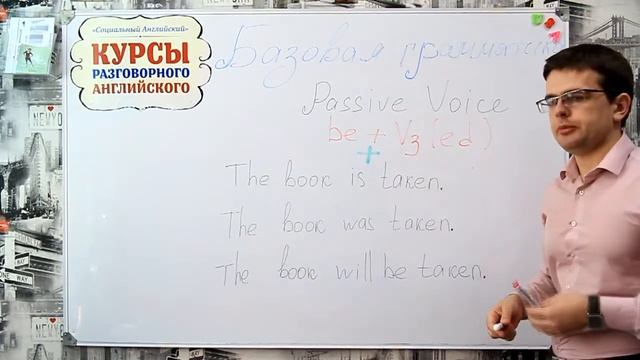 «Социальный Английский»
КУРСЫ
РАЗГОВОРНОГО
АНГЛИЙСКОГО
Базовая грамматика
Passive Voice
be + V3 (ed)
+
The book is taken.
The book was taken.
The book will be taken.